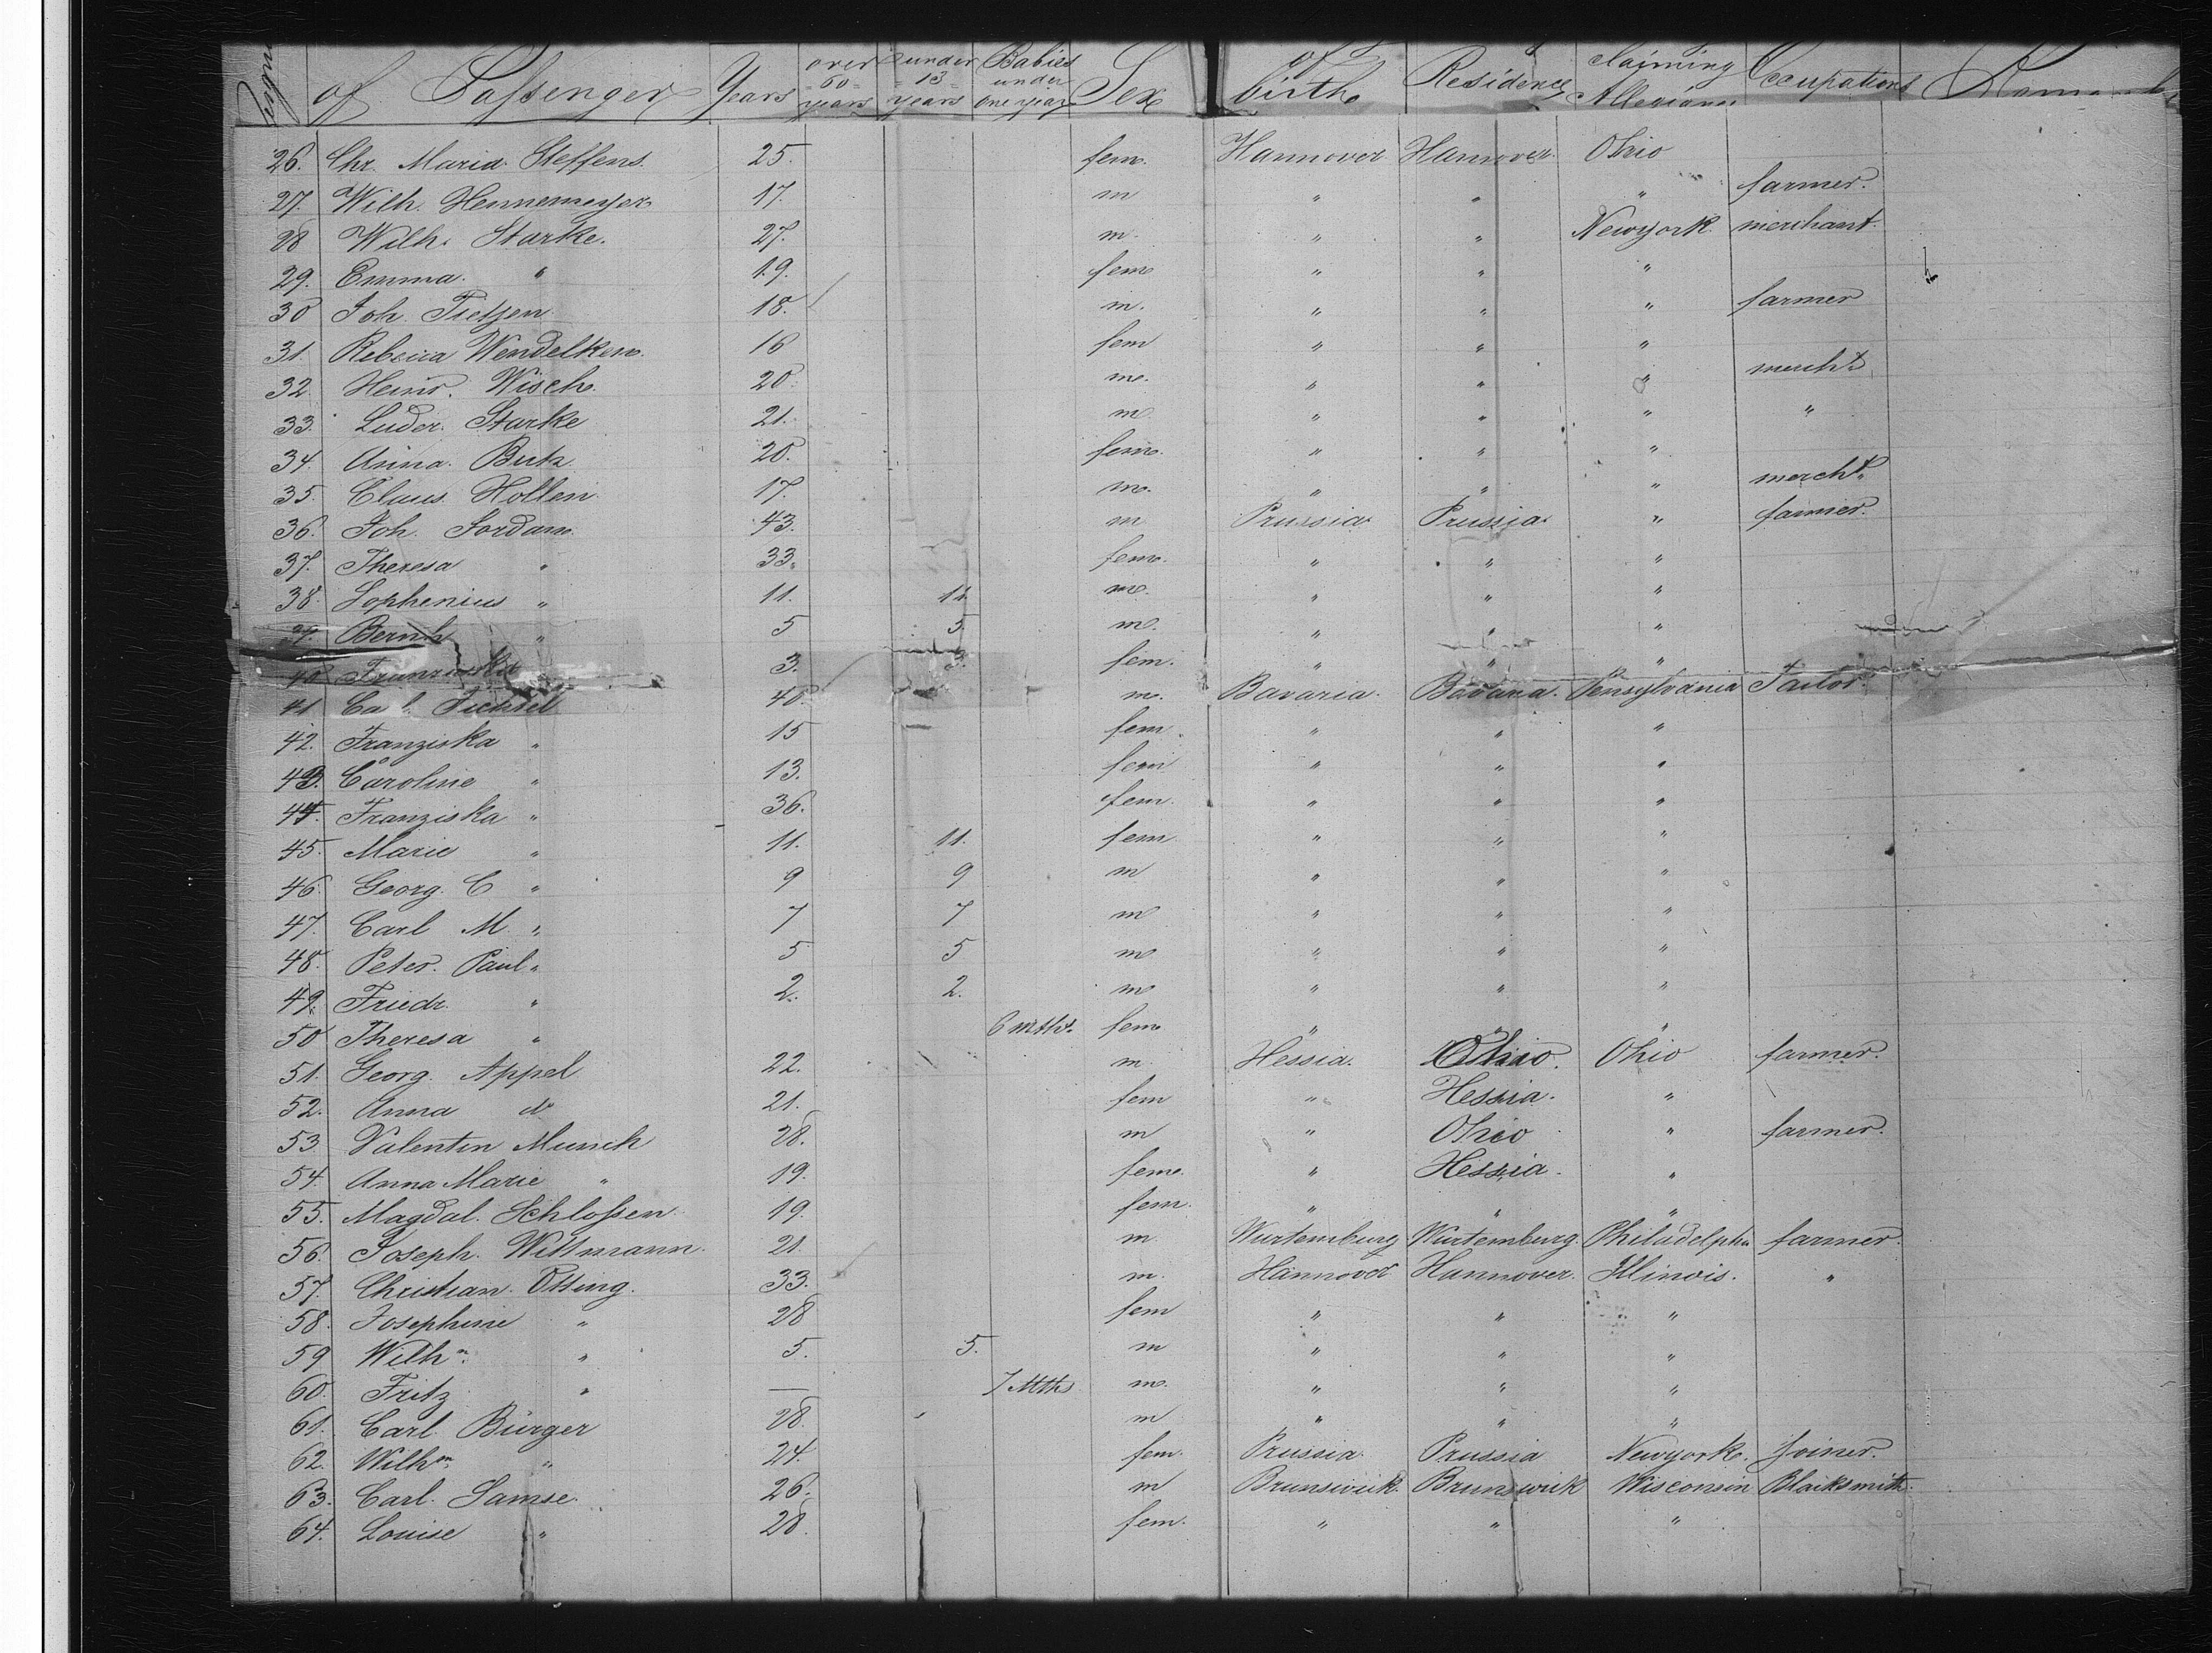 of Passenger Years over 60 years under 13 years Babies under one year Sex of birth Residence claiming Allegiance Occupations
26. Chr. Maria Steffens. 25. fem. Hannover Hannover. Ohio
27. Wilh. Hennemeyer 17. m " " " farmer.
28 Wilh. Starke. 27. m. " " Newyork merchant.
29. Emma. " 19. fem " " "
30 Joh. Tietjen 18. m. " " " farmer
31. Rebecca Wendelken. 16 fem " " "
32. Heinr. Wisch. 20. m. " " " mercht
33. Luder Starke 21. m. " " " "
34. Anna. Butz 20. fem. " " "
35. Claus Hollen 17. m. " " " mercht.
36. Joh. Jordan 43. m Prussia. Prussia. " farmer.
37. Theresa " 33. fem. " " "
38. Sophenius " 11. 11. m. " " "
39. Bernh " 5 5. m. " " "
40 Franziska 3. 3. fem. " " "
41 Carl. Fichtel 40. m. Bavaria. Bavaria. Pensylvania Tailor.
42. Franziska " 15 fem. " " "
43. Caroline " 13. fem " " "
44. Franziska " 36. fem. " " "
45. Marie " 11. 11. fem " " "
46. Georg. C " 9 9 m " " "
47. Carl M " 7 7 m " " "
48. Peter. Paul " 5 5 m " " "
49. Friedr. " 2. 2. m " " "
50 Theresa " 6 mths. fem " " "
51. Georg. Appel 22. m. Hessia. Ohio. Ohio farmer.
52. Anna do 21. fem " Hessia. "
53 Valentin Munch 28. m " Ohio " farmer.
54. Anna Marie " 19. fem. " Hessia. "
55. Magdal. Schlossen 19. fem. " " "
56. Joseph. Wittmann. 21. m. Wurtemburg Wurtemburg. Philadelphia farmer.
57. Christian. Otting. 33. m. Hannover Hannover. Illinois. "
58. Josephine " 28 fem " " "
59 Wilhm. " 5. 5. m " " "
60. Fritz " — 7 Mths m. " " "
61. Carl. Bürger 28. m " " "
62. Wilhm. " 24. fem. Prussia. Prussia Newyork. Joiner.
63. Carl. Samse. 26. m Brunswick. Brunswick Wisconsin Blacksmith.
64. Louise " 28. fem. " " "